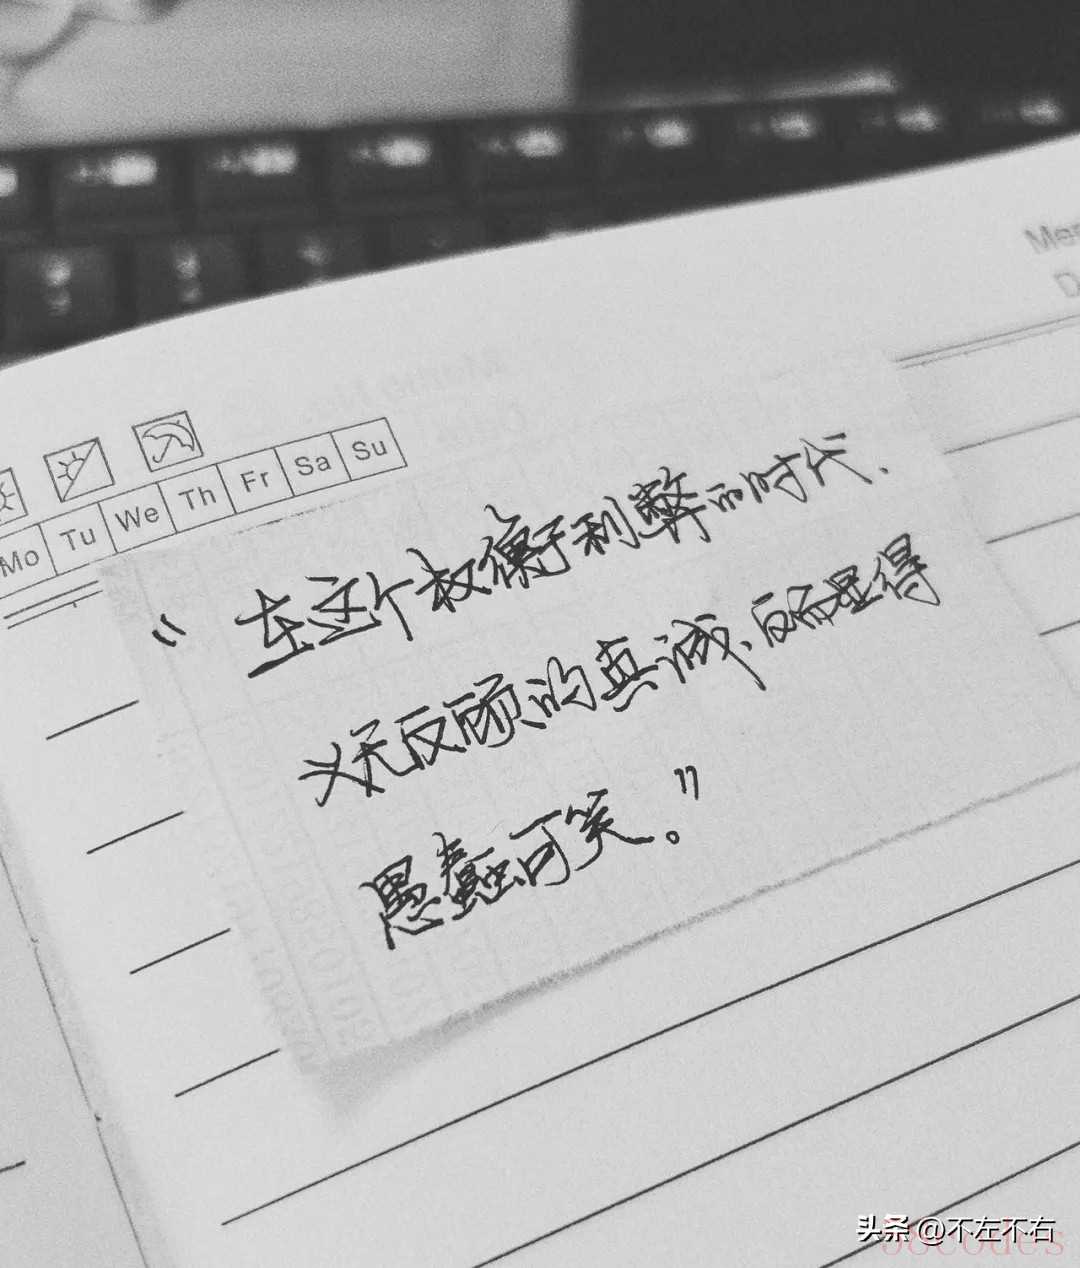 Mo Tu We Th Fr Sa Su
“在这个权衡利弊的时代、
义无反顾的真诚、反而显得
愚蠢可笑。”
头条 @不左不右
58codes